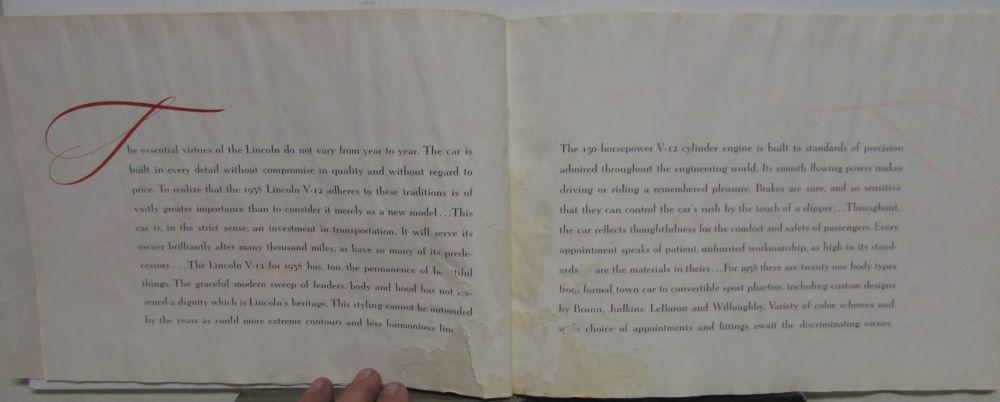 The essential virtues of the Lincoln do not vary from year to year. The car is
built in every detail without compromise in quality and without regard to
price. To realize that the 1938 Lincoln V-12 adheres to these traditions is of
vastly greater importance than to consider it merely as a new model...This
car is, in the strict sense, an investment in transportation. It will serve its
owner brilliantly after many thousand miles, as have so many of its prede-
cessors...The Lincoln V-12 for 1938 has, too, the permanence of
things. The graceful modern sweep of fenders, body and hood has not
sened a dignity which is Lincoln's heritage. This styling cannot be outmoded
by the years as could more extreme contours and less harmonious
The 150-horsepower V-12 cylinder engine is built to standards of precision
admired throughout the engineering world. Its smooth flowing power makes
driving or riding a remembered pleasure. Brakes are sure, and so sensitive
that they can control the car's rush by the touch of a slipper...Throughout,
the car reflects thoughtfulness for the comfort and safety of passengers. Every
appointment speaks of patient, unhurried workmanship, as high in its stand-
ards are the materials in theirs...For 1938 there are twenty-one body types
from formal town car to convertible sport phaeton, including custom designs
by Brunn, Judkins, LeBaron and Willoughby. Variety of color schemes and
choice of appointments and fittings await the discriminating owner.